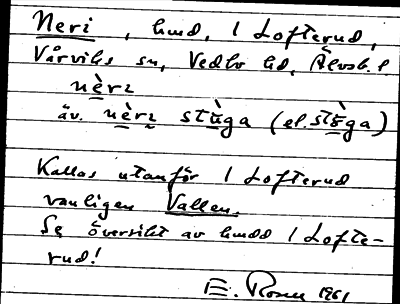 Neri, hmd, 1 Lofterud,
Värviks sn, Vedbo hd, Älvsb. l
nèri
äv. nèri stùga (el. stö̀ga)
Kallas utanför 1 Lofterud
vanligen Vallen.
Se översikt av hmdd 1 Lofte-
rud!
E. Rosen 1961